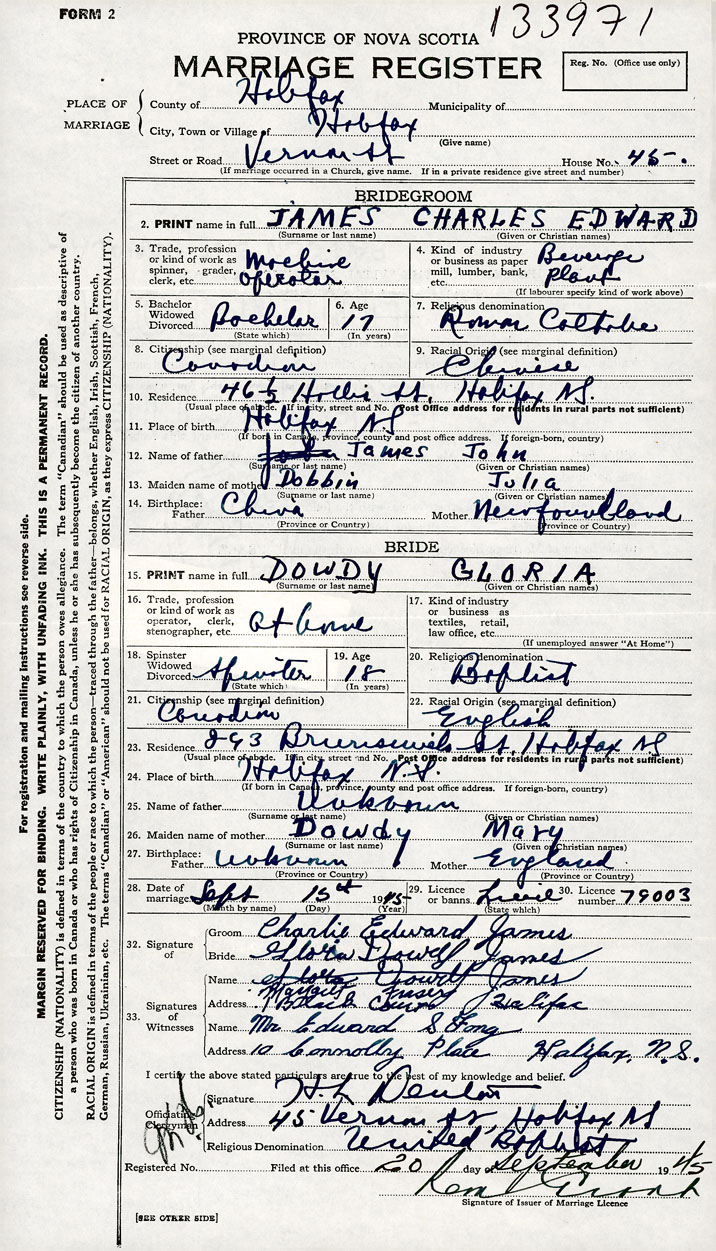 FORM 2
133971
PROVINCE OF NOVA SCOTIA
MARRIAGE REGISTER
Reg. No. (Office use only)
PLACE OF MARRIAGE
County of Halifax Municipality of
City, Town or Village of Halifax
(Give name)
Street or Road Vernon St House No. 45.
(If marriage occurred in a Church, give name. If in a private residence give street and number)
BRIDEGROOM
2. PRINT name in full JAMES CHARLES EDWARD
(Surname or last name) (Given or Christian names)
3. Trade, profession or kind of work as spinner, grader, clerk, etc. Machine operator
4. Kind of industry or business as paper mill, lumber, bank, etc. Beverage Plant
(If labourer specify kind of work above)
5. Bachelor Widowed Divorced Bachelor
(State which)
6. Age 17
(In years)
7. Religious denomination Roman Catholic
8. Citizenship (see marginal definition) Canadian
9. Racial Origin (see marginal definition) Chinese
10. Residence 46 1/2 Hollis St, Halifax NS.
(Usual place of abode. If in city, street and No. Post Office address for residents in rural parts not sufficient)
11. Place of birth Halifax NS
(If born in Canada, province, county and post office address. If foreign-born, country)
12. Name of father James John
(Surname or last name) (Given or Christian names)
13. Maiden name of mother Dobbin Julia
(Surname or last name) (Given or Christian names)
14. Birthplace: Father China Mother Newfoundland
(Province or Country) (Province or Country)
BRIDE
15. PRINT name in full DOWDY GLORIA
(Surname or last name) (Given or Christian names)
16. Trade, profession or kind of work as operator, clerk, stenographer, etc. At home
17. Kind of industry or business as textiles, retail, law office, etc.
(If unemployed answer "At Home")
18. Spinster Widowed Divorced Spinster
(State which)
19. Age 18
(In years)
20. Religious denomination Baptist
21. Citizenship (see marginal definition) Canadian
22. Racial Origin (see marginal definition) English
23. Residence 293 Brunswick St, Halifax NS
(Usual place of abode. If in city, street and No. Post Office address for residents in rural parts not sufficient)
24. Place of birth Halifax N.S.
(If born in Canada, province, county and post office address. If foreign-born, country)
25. Name of father Unknown
(Surname or last name) (Given or Christian names)
26. Maiden name of mother Dowdy Mary
(Surname or last name) (Given or Christian names)
27. Birthplace: Father Unknown Mother England
(Province or Country) (Province or Country)
28. Date of marriage Sept 15th 1945
(Month by name) (Day) (Year)
29. Licence or banns
(State which)
30. Licence number 79003
32. Signature of
Groom Charlie Edward James
Bride Gloria Dowell James
33. Signatures of Witnesses
Name Gloria Dowell James
Margaret Fraser
Address Court Halifax
Name Mr Edward S Fong
Address 10 Connolly Place Halifax, N.S.
I certify the above stated particulars are true to the best of my knowledge and belief.
Officiating Clergyman
Signature H. L. Denton
Address 45 Vernon St, Halifax NS
Religious Denomination United Baptist
Registered No. Filed at this office 20 day of September 1945
Signature of Issuer of Marriage Licence
[SEE OTHER SIDE]
For registration and mailing instructions see reverse side.
MARGIN RESERVED FOR BINDING. WRITE PLAINLY, WITH UNFADING INK. THIS IS A PERMANENT RECORD.
CITIZENSHIP (NATIONALITY) is defined in terms of the country to which the person owes allegiance. The term "Canadian" should be used as descriptive of
a person who was born in Canada or who has rights of Citizenship in Canada, unless he or she has subsequently become the citizen of another country.
RACIAL ORIGIN is defined in terms of the people or race to which the person—traced through the father—belongs, whether English, Irish, Scottish, French,
German, Russian, Ukrainian, etc. The terms "Canadian" or "American" should not be used for RACIAL ORIGIN, as they express CITIZENSHIP (NATIONALITY).